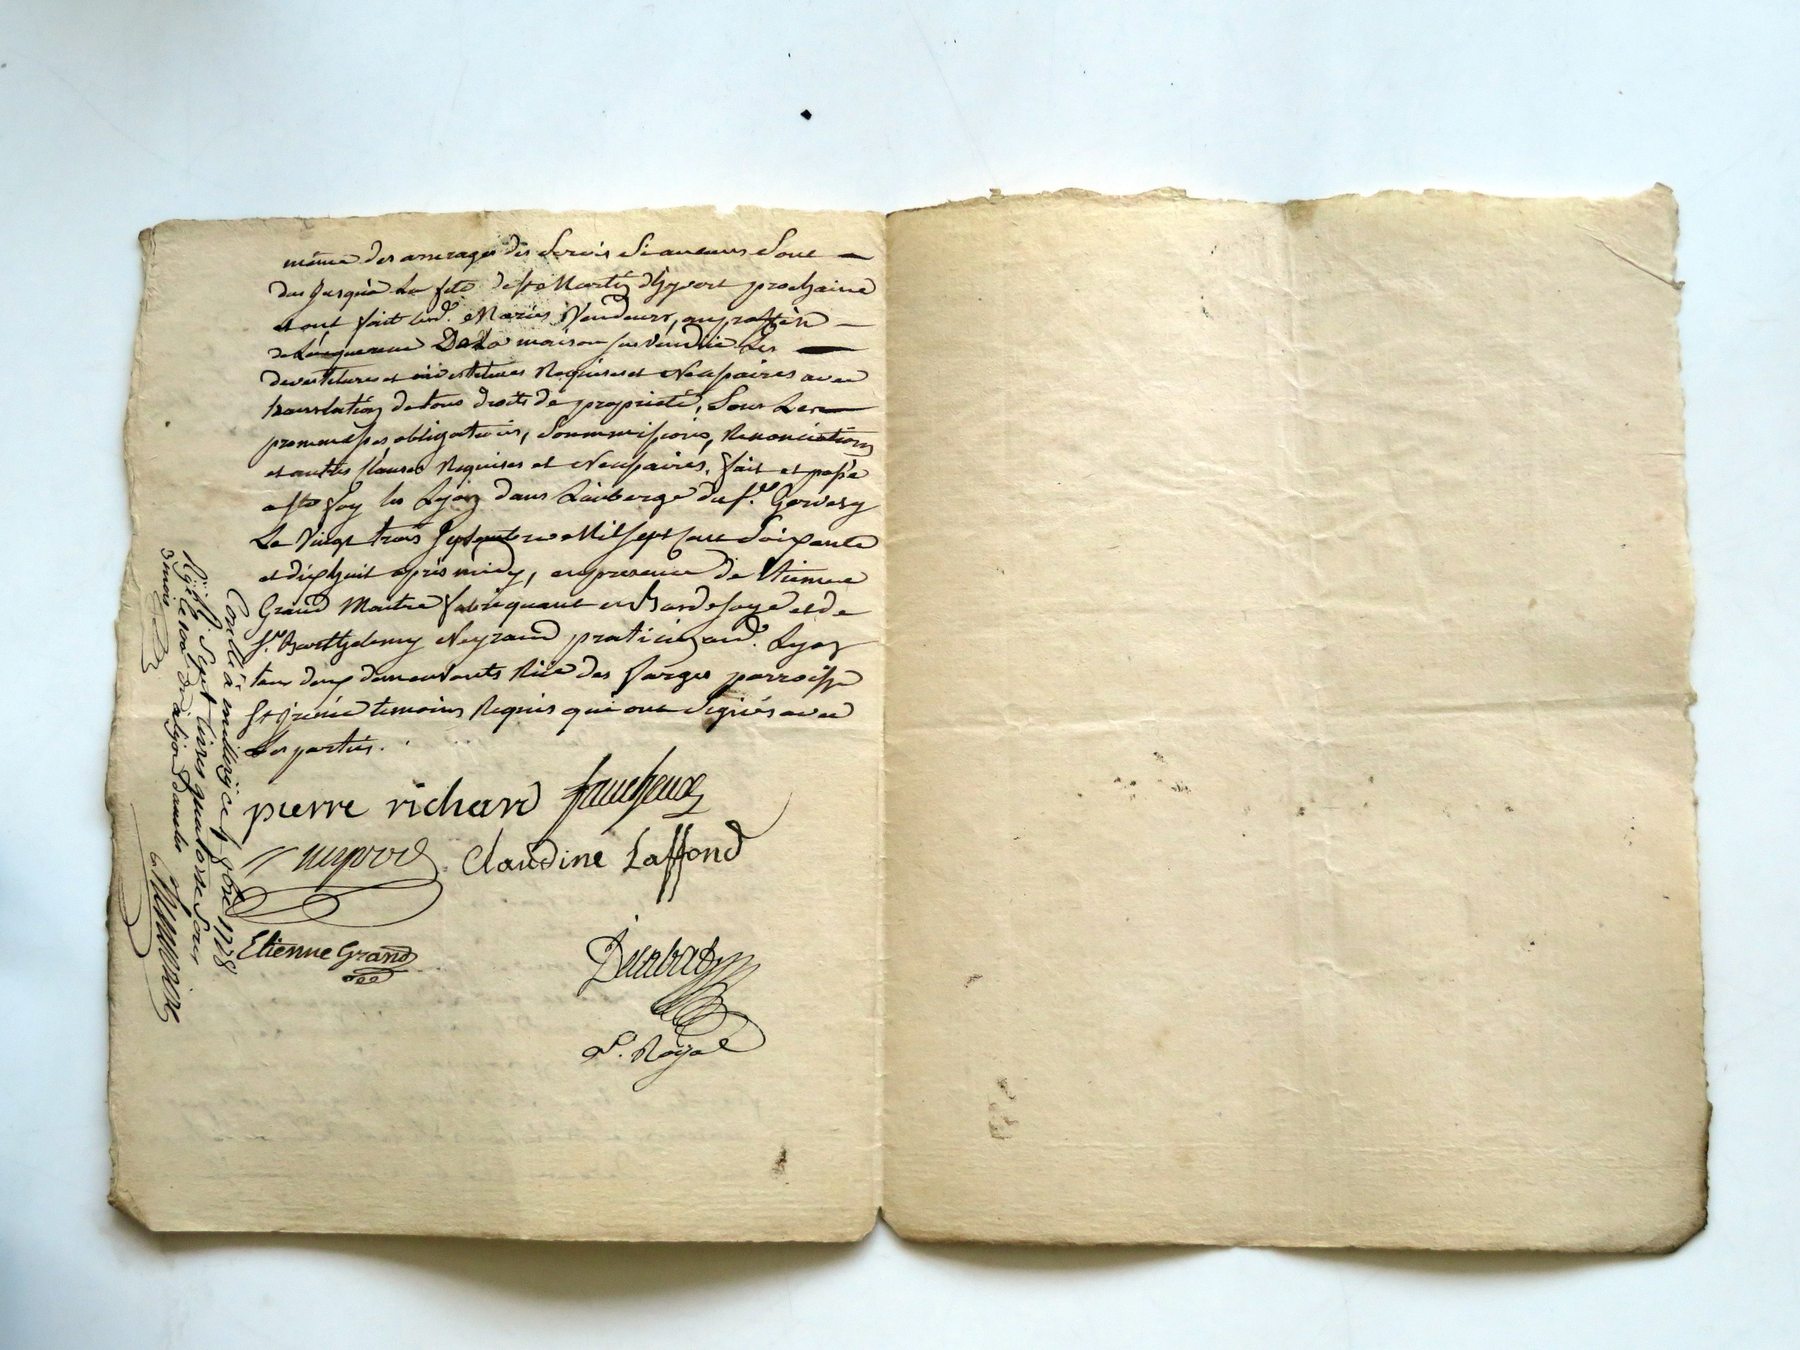 même des arrerages des Servis Si aucuns Sont
dus Jusqu'a La fete de St Martin d'hyvert prochaine
et ont fait led. Mariés Vendeurs, au proffit
de Lacquereur De La maison sus vendue Les
devestitures et investitures Requises et Necessaires avec
translation de tous droits de proprieté, Sous Les
promesses obligations, Soummissions, Renonciations
et autres Clauses Requises et Necessaires, fait et passé
a Ste foy les Lyon dans L'auberge du Sr.
Le Vingt trois Septembre Mil Sept Cent Soixante
et dixhuit apres midy, en presence de Etienne
Grand Maitre fabriquant en bas de soye et de
Sr. Barthelemy Neyrand praticien aud. Lyon
tous deux demeurants Rüe des farges parroisse
St Irénée temoins Requis qui ont Signés avec
Les parties.
pierre richard faucheux
Claudine Laffond
Etienne Grand
Royal
Controllé à ce 1778
Reçu Sept livres quatorze Sous